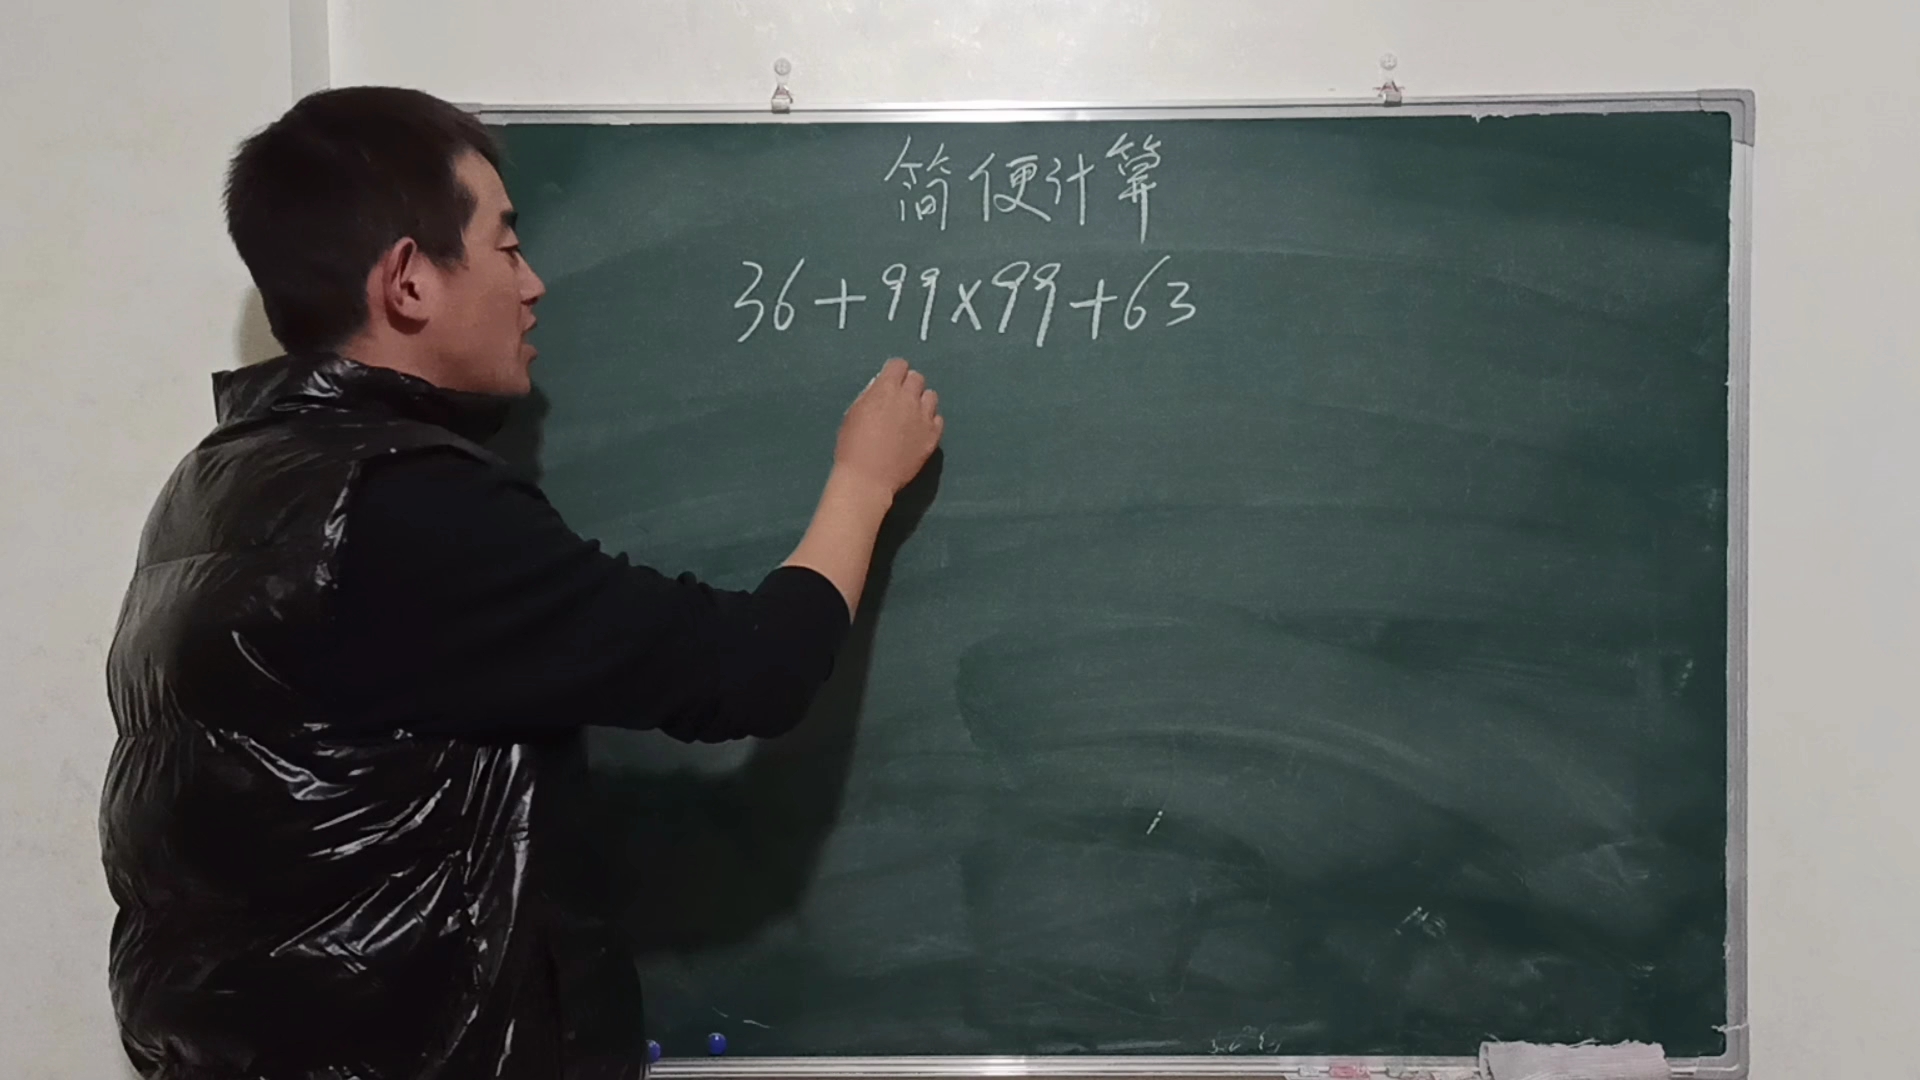 简便计算
36+99×99+63